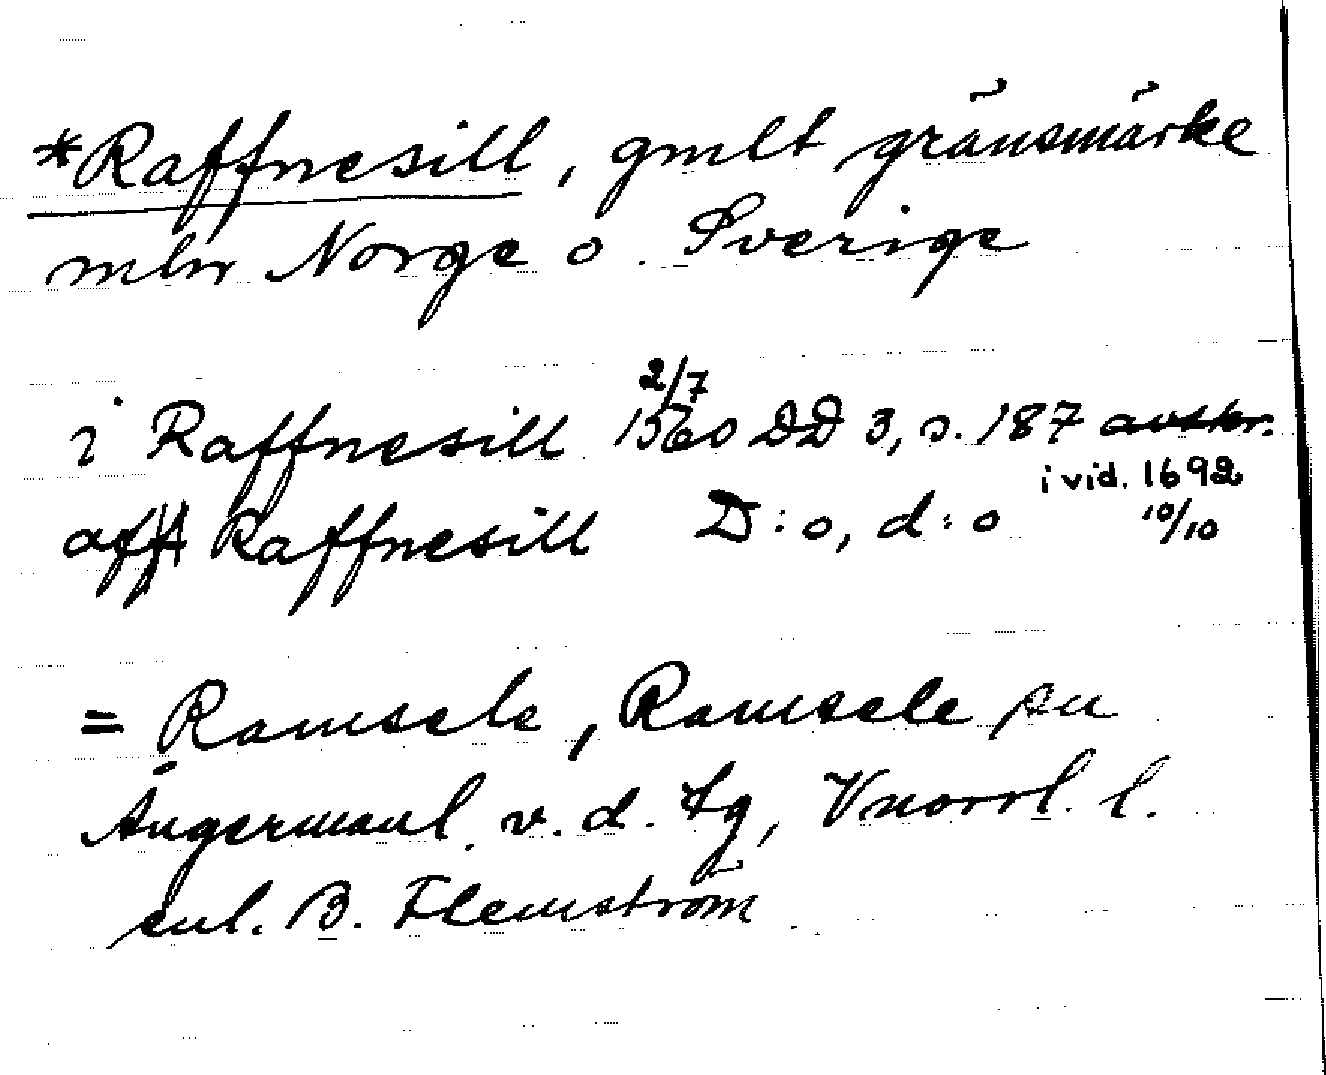 *Raffnesill, gmlt gränsmärke
mln Norge o. Sverige
2/7
i Raffnesill 1560 DD 3, s. 187 avskr.
i vid. 1692
aff Raffnesill D:o, d:o 10/10
= Ramsele, Ramsele sn
Ångermanl. v.d. Lg, Vnorrl. l.
enl. B. Flemström